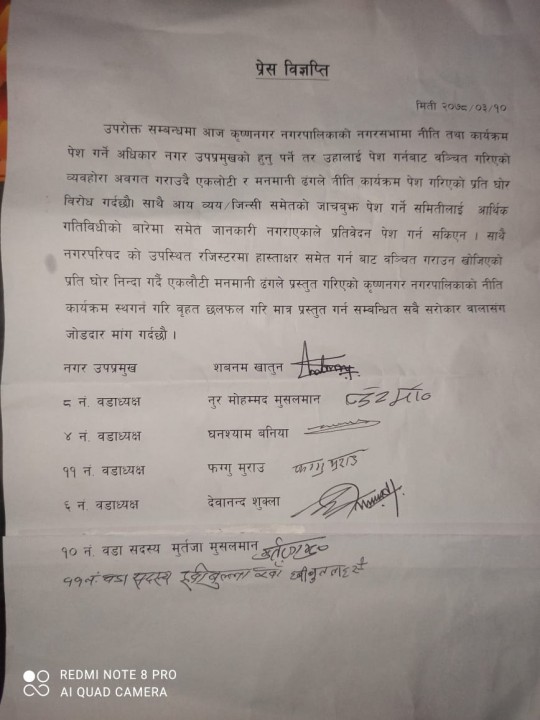 प्रेस विज्ञप्ति
मिती २०७८/०३/१०
उपरोक्त सम्बन्धमा आज कृष्णनगर नगरपालिकाको नगरसभामा नीति तथा कार्यक्रम
पेश गर्ने अधिकार नगर उपप्रमुखको हुनु पर्ने तर उहालाई पेश गर्नबाट बञ्चित गरिएको
व्यवहोरा अवगत गराउदै एकलोटी र मनमानी ढंगले नीति कार्यक्रम पेश गरिएको प्रति घोर
विरोध गर्दछौ। साथै आय व्यय/जिन्सी समेतको जाचबुझ पेश गर्ने समितीलाई आर्थिक
गतिविधीको बारेमा समेत जानकारी नगराएकाले प्रतिवेदन पेश गर्न सकिएन । साथै
नगरपरिषद को उपस्थित रजिस्टरमा हास्ताक्षर समेत गर्न बाट बञ्चित गराउन खोजिएको
प्रति घोर निन्दा गर्दै एकलौटी मनमानी ढंगले प्रस्तुत गरिएको कृष्णनगर नगरपालिकाको नीति
कार्यक्रम स्थगन गरि वृहत छलफल गरि मात्र प्रस्तुत गर्न सम्बन्धित सबै सरोकार वालासंग
जोडदार मांग गर्दछौ ।
नगर उपप्रमुख शबनम खातुन
८ नं. वडाध्यक्ष नुर मोहम्मद मुसलमान
४ नं. वडाध्यक्ष घनश्याम बनिया
११ नं. वडाध्यक्ष फग्गु मुराउ फग्गु मुराउ
६ नं. वडाध्यक्ष देवानन्द शुक्ला
१० नं. वडा सदस्य मुर्तजा मुसलमान
११ नं. वडा सदस्य
REDMI NOTE 8 PRO
AI QUAD CAMERA